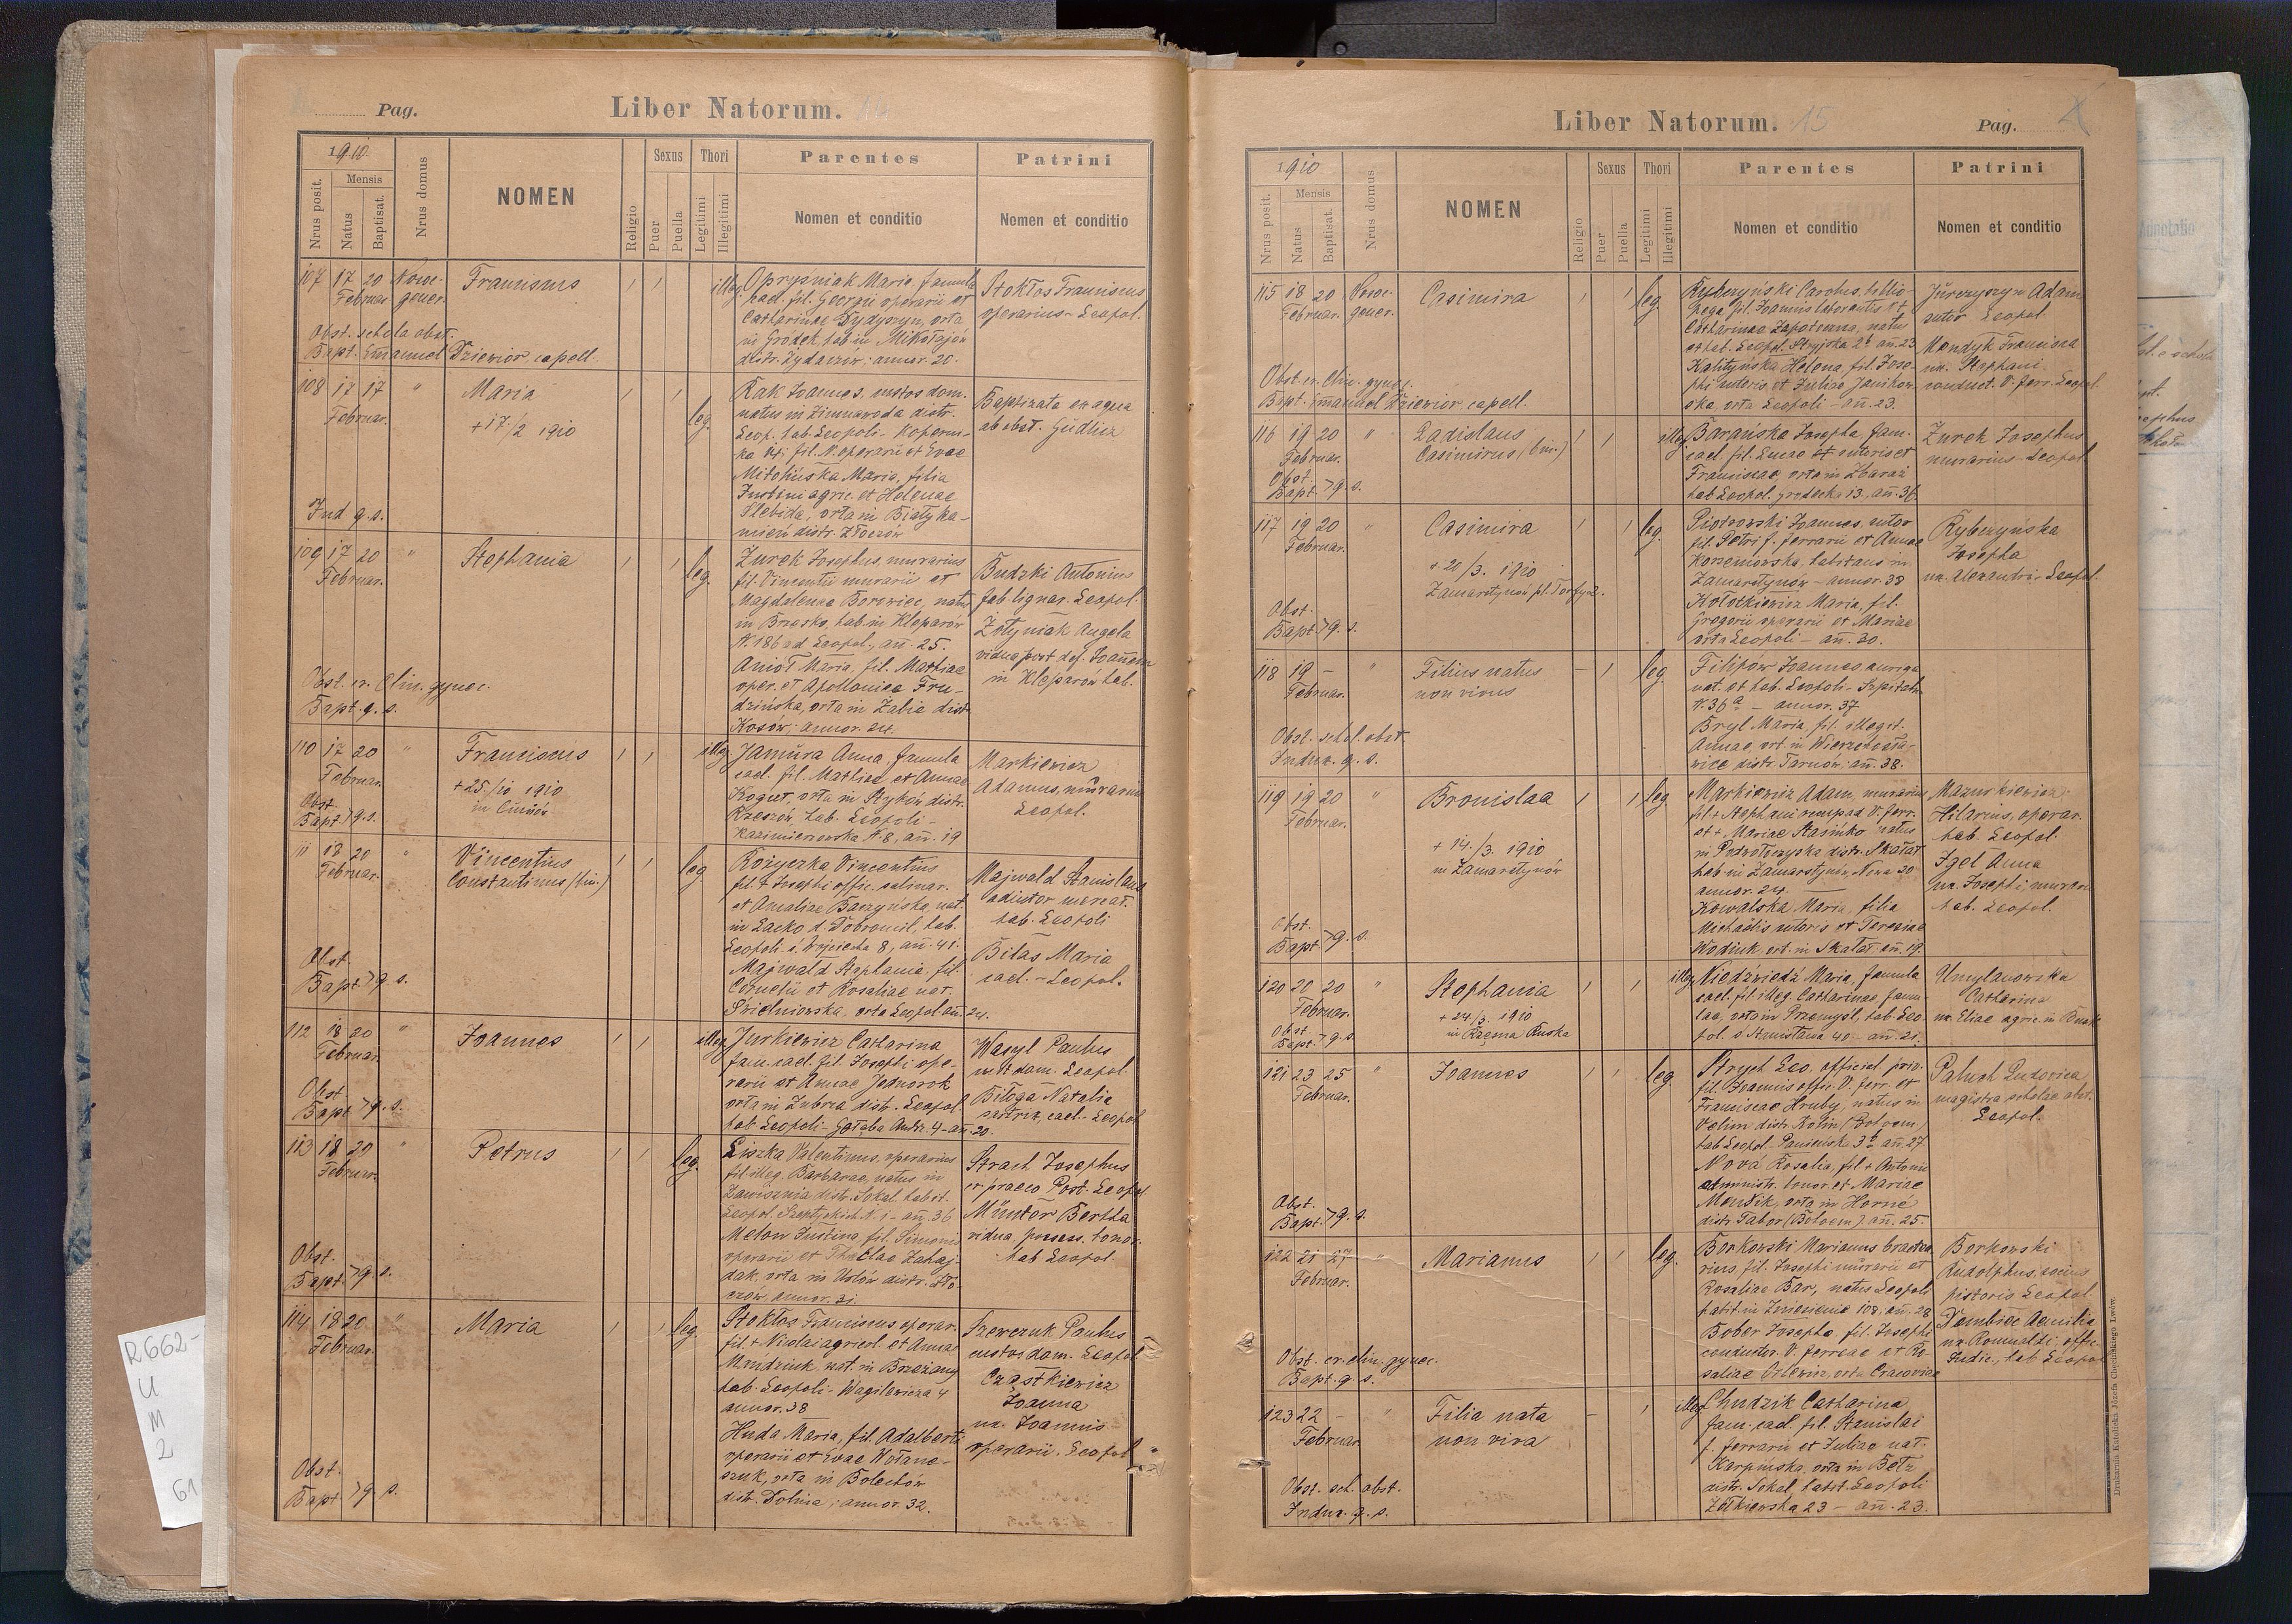 Pag.
Liber Natorum. 14
1910.
Nrus posit.
Mensis
Natus
Baptisat.
Nrus domus
NOMEN
Religio
Sexus
Puer
Puella
Thori
Legitimi
Illegitimi
Parentes
Nomen et conditio
Patrini
Nomen et conditio
107 17 20 Nowo-
Februar. gener.
Franciscus
illeg.
Opryszniak Maria, famula
cael. fil. Georgii operarii et
Catharinae Dydyszyn, orta
in Gródek, hab. in Mikołajów
distr. Żydaczów; annor. 20.
Stoktos Franciscus
operarius - Leopol.
Obst. schola obst.
Bapt. Emanuel Dziewior, capell.
108 17 17 "
Februar.
Maria
+ 17/2 1910
leg.
Rak Joannes, custos dom.
natus in Zimnawoda distr.
Leop. hab. Leopoli - Koperni-
ka fil. N. operarii et Evae
Mitolińska Maria, filia
Justini agric. et Helenae
Hlebida, orta in Białyka-
mień distr. Złoczów
Baptizata ex aqua
ab obst. Gudlicz
Ind. q. s.
109 17 20 "
Februar.
Stephania
leg.
Żurek Josephus, murarius
fil. Vincentii murarii et
Magdalenae Borowiec, natus
in Brzusko, hab. in Kleparów
N. 186 ad Leopol., an. 25.
Amot Maria, fil. Mathiae
oper. et Apolloniae Fru-
dzińska, orta in Żabie distr.
Kosów; annor. 24.
Budzki Antonius
fab. lignar. Leopol.
Żołyniak Angela
vidua post def. Joannem
in Kleparów hab.
Obst. ex Clin. gynec.
Bapt. q. s.
110 17 20 "
Februar.
Franciscus
+ 25/10 1910
illeg.
Jamura Anna, famula
cael. fil. Mathiae et Annae
Kogut, orta in Styków distr.
Rzeszów, hab. Leopoli -
Kazimierzowska N. 8, an. 19
Markiewicz
Adamus, murarius
Leopol.
Obst.
Bapt. > q. s.
111 18 20 "
Februar.
Vincentius
Constantinus (bin.)
leg.
Rożyczka Vincentius
fil. + Josephi offic. salinar.
et Amaliae Baczyńska, nat.
in Lacko d. Dobromil, hab.
Leopoli - s. Wojciecha 8, an. 41.
Majwald Stephania, fil.
Cornelii et Rosaliae nat.
orta Leopol. an. 24.
Majwald Stanislaus
adiutor mercat.
hab. Leopoli
Bilas Maria
cael. - Leopol.
Obst.
Bapt. > q. s.
112 18 20 "
Februar.
Joannes
illeg.
Jurkiewicz Catharina
fam. cael. fil. Josephi ope-
rarii et Annae Jednorok
orta in Zubrza distr. Leopol
hab. Leopoli - Gołąba Andr. 4 - an. 20.
Wasyl Paulus
cust. dom. Leopol
Biłoga Natalia
sartrix, cael. - Leopol
Obst.
Bapt. > q. s.
113 18 20 "
Februar.
Petrus
leg.
Liszka Valentinus, operarius
fil. illeg. Barbarae, natus in
Zawisznia distr. Sokal habit.
Leopol. Szeptyckich N. 1 - an. 36
Meton Justina, fil. Simonis
operarii et Theclae Zahaj-
dak, orta in Usłów distr. Zło-
czow annor. 31.
Strach Josephus
ex praeco Post. Leopol.
Münster Bertha
vidua, possess. bonor.
hab. Leopol.
Obst.
Bapt. > q. s.
114 18 20 "
Februar.
Maria
leg.
Stoktos Franciscus operar.
fil. + Nicolai agricol. et Annae
Mandziuk nat. in Brzeżany
hab. Leopoli - Wagilewicza 4
annor. 38
Huda Maria, fil. Adalberti
operarii et Evae Wołano-
szuk, orta in Bolechów
distr. Dolina; annor. 32.
Szewczuk Paulus
custos dom. Leopol
Cząstkiewicz
Joanna
ux. Joannis
operarii. Leopol
Obst.
Bapt. > q. s.
R662-
U
M
2
61
Liber Natorum. 15
Pag.
1910
Nrus posit.
Mensis
Natus
Baptisat.
Nrus domus
NOMEN
Religio
Sexus
Puer
Puella
Thori
Legitimi
Illegitimi
Parentes
Nomen et conditio
Patrini
Nomen et conditio
115 18 20 Nowo-
Februar. gener.
Casimira
leg.
Rybczyński Carolus, biblio-
pega fil. Joannis laborantis et
Catharinae Zapotoczna, natus
et hab. Leopol. Stryjska 2 an. 23
Kalityńska Helena, fil. Jose-
phi sutoris et Juliae Janikow-
ska, orta Leopoli - an. 23.
Jurczyszyn Adam
sutor Leopol
Mendyk Francisca
ux. Stephani
conduct. V. ferr. Leopol.
Obst. ex Clin. gynec.
Bapt. Emanuel Dziewior, capell.
116 19 20 "
Februar.
Ladislaus
Casimirus (bin.)
illeg.
Barańska Josepha fam.
cael. fil. Lucae sutoris et
Franciscae, orta in Zbaraż
hab. Leopol. Grodecka 13, an. 36
Żurek Josephus
murarius - Leopol
Obst.
Bapt. > q. s.
117 19 20 "
Februar.
Casimira
+ 20/3. 1910
Zamarstynów
leg.
Piotrowski Joannes, sutor
fil. Petri f. ferrarii et Annae
Korzeniowska, habitans in
Zamarstynów - annor. 38
Kołotkiewicz Maria, fil.
Gregorii operarii et Mariae
orta Leopoli - an. 30.
Rybczyńska
Josepha
ux. Alexandri - Leopol.
Obst.
Bapt. > q. s.
118 19 - "
Februar.
Filius natus
non vivus
leg.
Filipów Joannes auriga
nat. et hab. Leopoli - Szpitalna
N. 36 a - annor. 37
Bryl Maria, fil. illegit.
Annae, ort. in Wierzchosła-
wice distr. Tarnów; an. 38.
Obst. schol. obst.
Indux. q. s.
119 19 20 "
Februar.
Bronislaa
+ 14./3. 1910
in Zamarstynów
leg.
Markiewicz Adam, murarius
fil. + Stephani V. ferr.
et + Mariae Stasinko natus
in Podwołoczyska distr. Skałat
hab. in Zamarstynów Nowa 20
annor. 24.
Kowalska Maria, filia
Michaëlis sutoris et Teresiae
Wodiuk ort. in Skałat an. 19.
Mazurkiewicz
Hilarius, operar.
hab. Leopol.
Igel Anna
ux. Josephi murarii
hab. Leopol.
Obst.
Bapt. > q. s.
120 20 20 "
Februar.
Stephania
+ 24/3. 1910
in Ruska
illeg.
Niedźwiedź Maria, famula
cael. fil. illeg. Catharinae famu-
lae, orta in Przemyśl, hab. Leo-
pol. s. Stanisława 40 - an. 21.
Catharina
ux. Eliae agric. in
Obst.
Bapt. > q. s.
121 23 25 "
Februar.
Joannes
leg.
Strych Leo, official priv.
fil. Joannis offic. V. ferr. et
Franciscae Hruby, natus in
Velim distr. Kolin (Bohoem)
hab Leopol - Panieńska 3 an. 27
Nová Rosalia, fil + Antonii
administr. bonor et Mariae
Menšik, orta in Horné
distr. Tabor (Bohoem). an. 25.
Paluch Ludovica
magistra scholae obst.
Leopol.
Obst.
Bapt. > q. s.
122 21 27 "
Februar.
Marianus
leg.
Borkowski Marianus bractea-
rius, fil. Josephi murarii et
Rosaliae Bar, natus Leopoli
habit in Zniesienie 108, an. 29
Bober Josepha, fil. Josephi
conductor. V. ferreae et Ro-
saliae Orlewicz, orta Cracoviae
Borkowski
Rudolphus, socius
pistoris Leopol
Dombiec Aemilia
ux. Romualdi, offic.
Judic., hab Leopol
Obst. ex clin. gynec.
Bapt. q. s.
123 22 - "
Februar.
Filia nata
non viva
illeg.
Chudzik Catharina
fam. cael. fil. Stanislai
f. ferrarii et Juliae nat.
Karpińska, orta in Bełz
distr. Sokal, habit. Leopoli
Żółkiewska 23 - an. 23.
Obst. sch. obst.
Indux. q. s.
Drukarnia Katolicka Józefa Chęcińskiego Lwów.